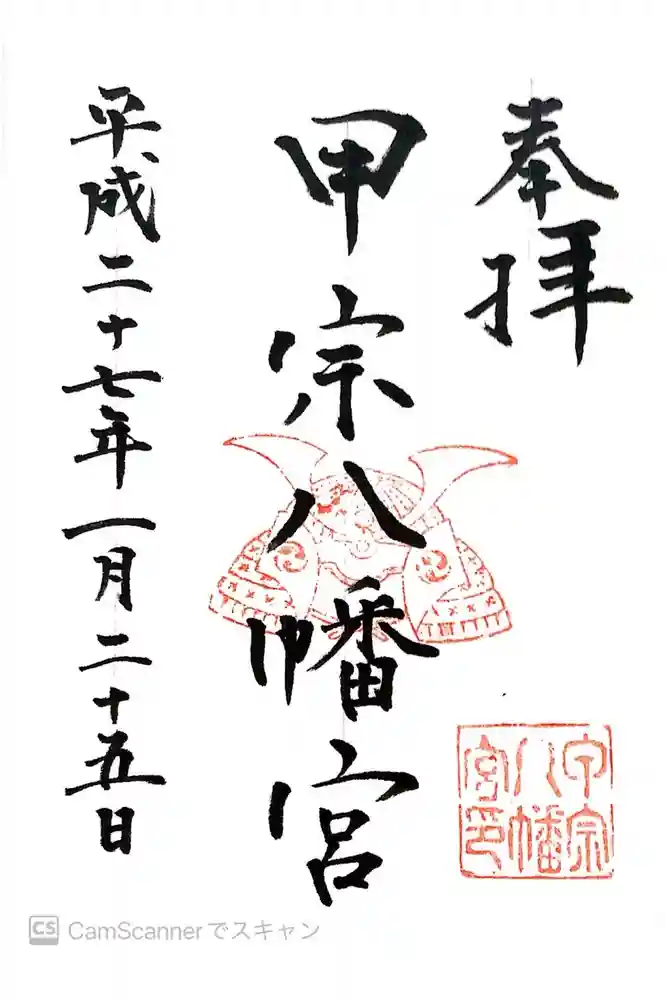 奉拝
甲宗八幡宮
平成二十七年一月二十五日
甲宗
八幡
宮印
CamScannerでスキャン